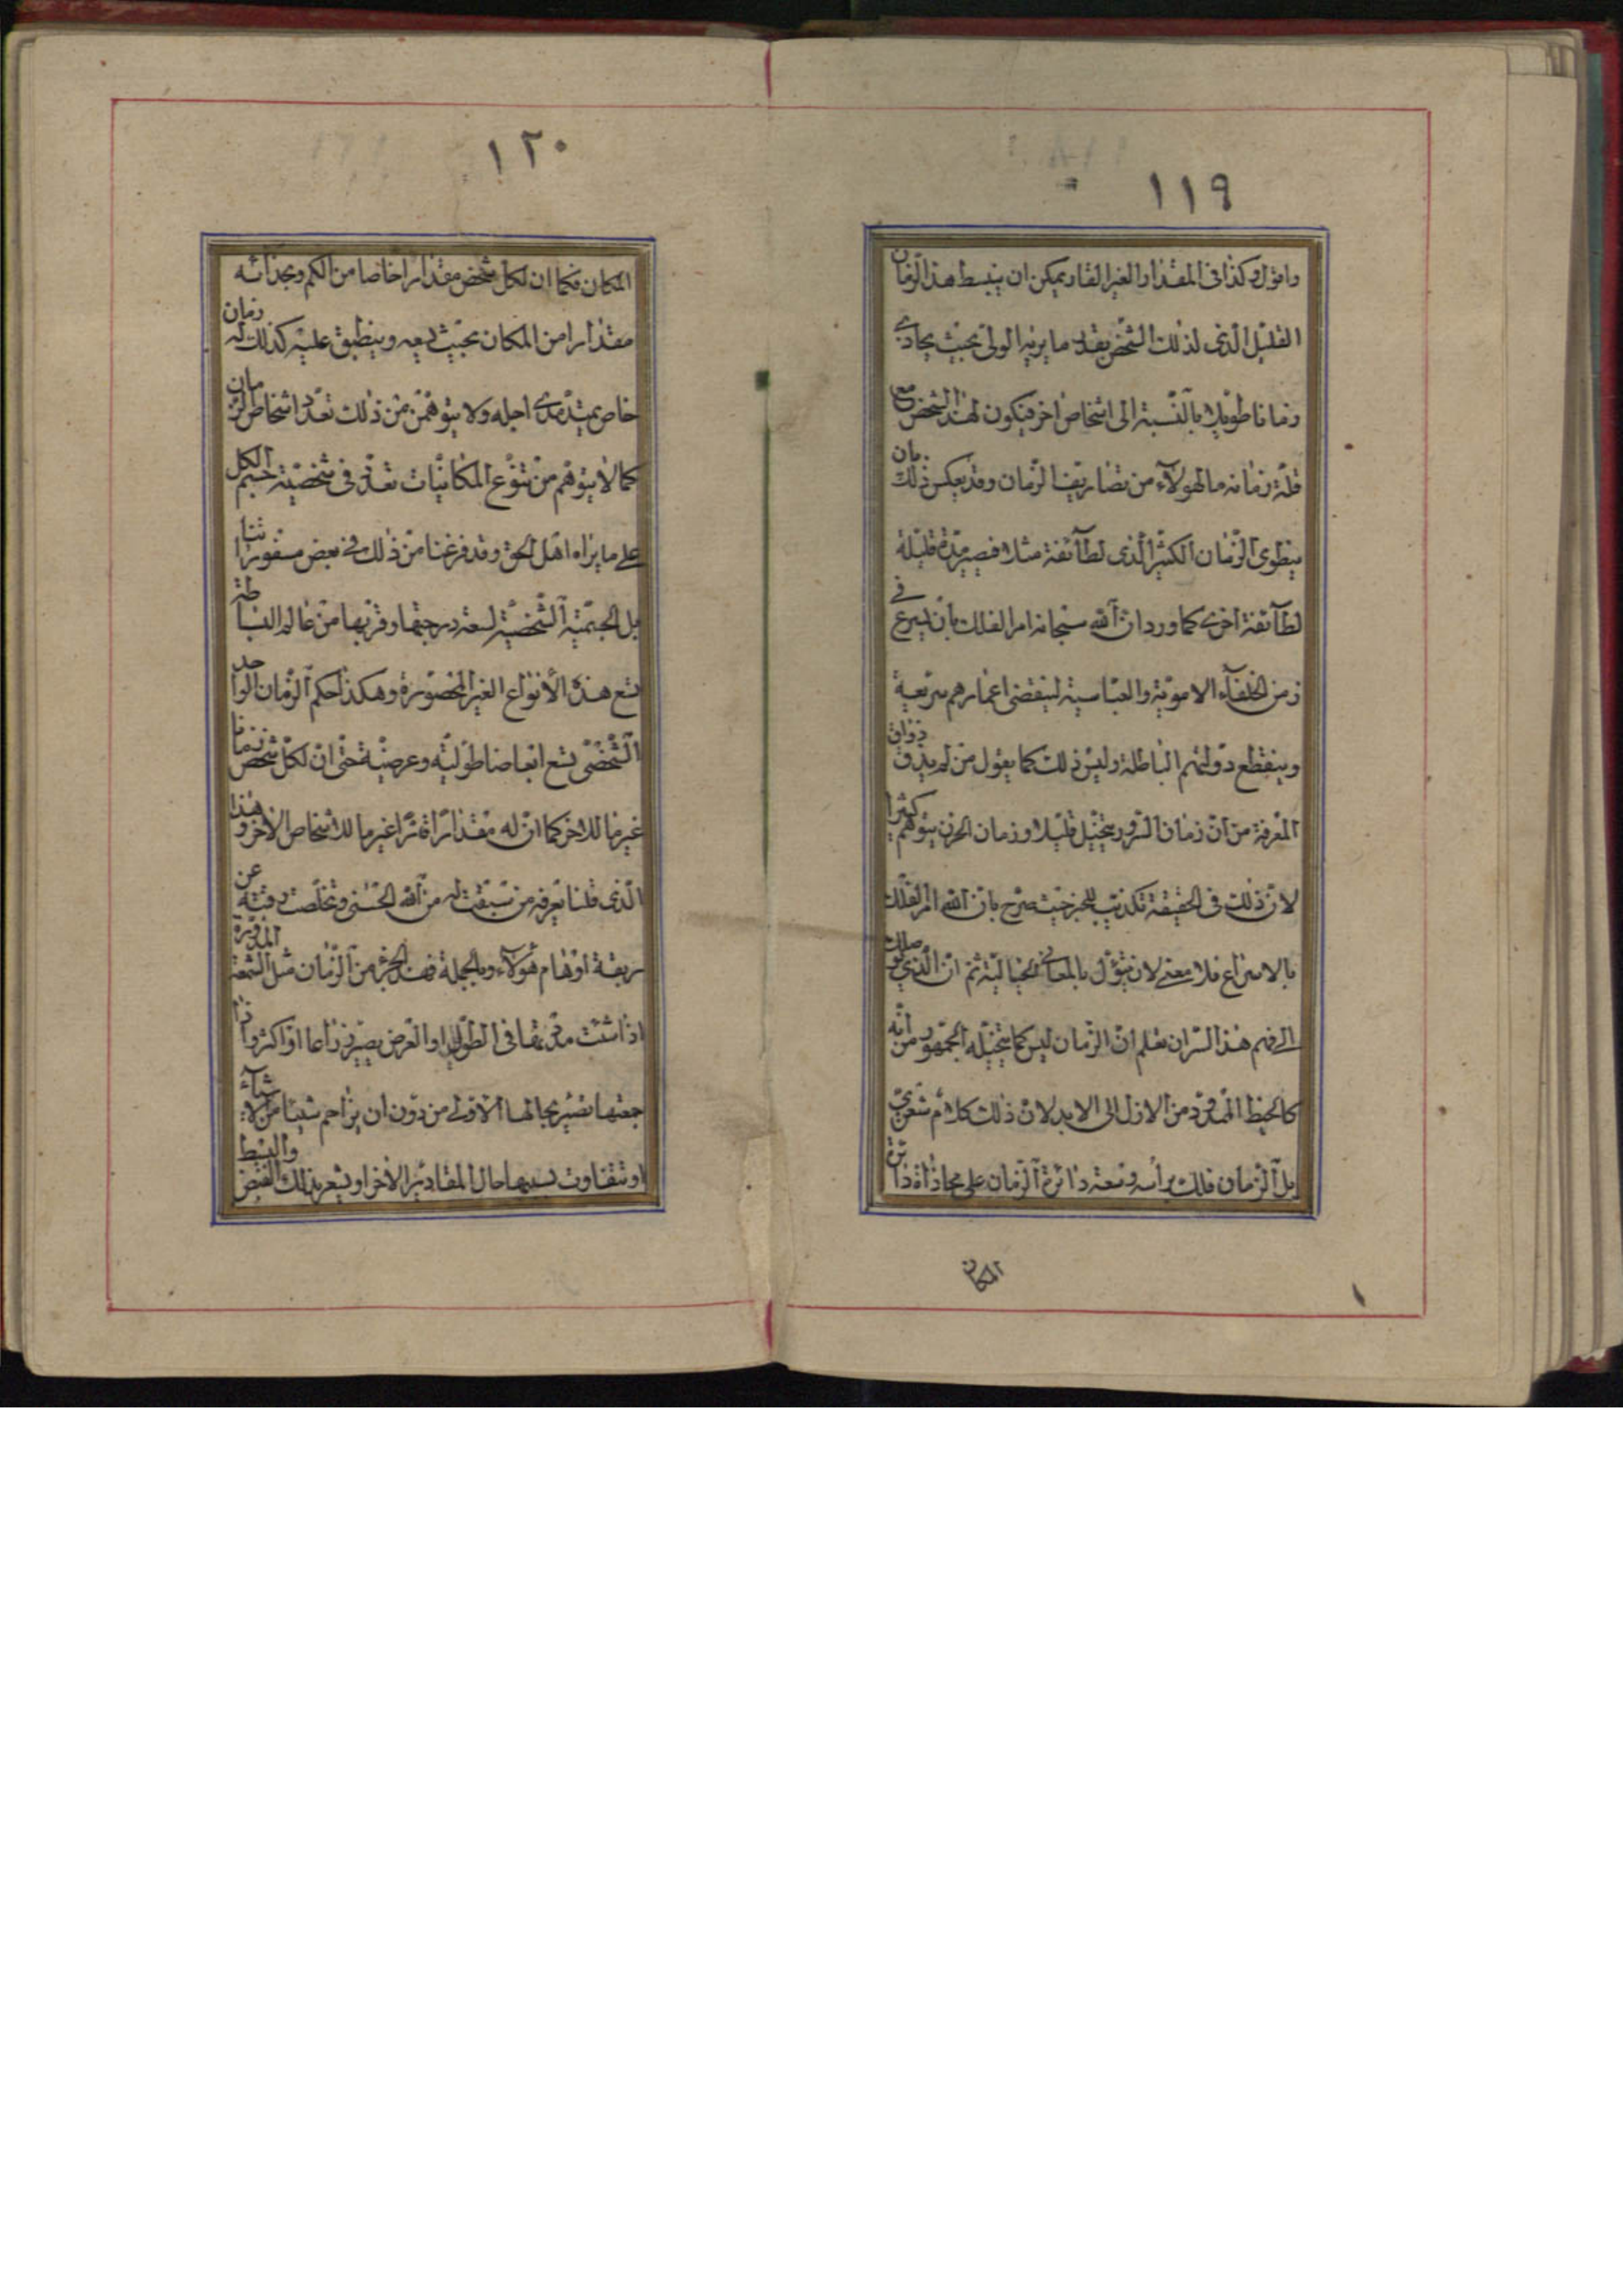 ١١٩
واقول وكذا فى المقدار الغير القار يمكن ان ينبسط هذا الزمان
القليل الذى لذلك الشخص بقدر ما يريه الولى بحيث يحاذى
زمانا طويلا بالنسبة الى اشخاص اخر فيكون لهذا الشخص مع
قلة زمانه ما لهولآء من تصاريف الزمان وقد يعكس ذلك بان
ينطوى الزمان الكثير الذى لطآئفة مثلا فيصير مدة قليلة
لطآئفة اخرى كما ورد ان الله سبحانه امر الفلك بان يسرع فى
زمن الخلفآء الاموية والعباسية لينقضى اعمارهم سريعة
وينقطع دولتهم الباطلة وليس ذلك كما يقول من لم يذق ذواق
المعرفة من ان زمان السرور يتخيل قليلا وزمان الحزن يتوهم كثيرا
لان ذلك فى الحقيقة تكذيب للخبر حيث صرح بان الله امر الفلك
بالاسراع فلا معنى لان يؤل بالمعانى الخيالية ثم ان الذى يوصلك
الى فهم هذا السر ان تعلم ان الزمان ليس كما يتخيله الجمهور من انه
كالخيط الممدود من الازل الى الابد لان ذلك كلام شعرى
بل الزمان فلك برأسه وسعة دائرة الزمان على محاذاة دائرة
المكان
١٢٠
المكان فكما ان لكل شخص مقدارا خاصا من الكم وبحذائه
مقدارا من المكان بحيث يسعه وينطبق عليه كذلك له زمان
خاص يمتد مدى اجله ولا يتوهمن من ذلك تعدد اشخاص الزمان
كما لا يتوهم من تنوع المكانيات تعدد فى شخصية جسم الكل
على ما يراه اهل الحق وقد فرغنا من ذلك فى بعض مسفوراتنا
بل الجسمية الشخصية لسعة درجتها وقربها من عالم البساطة
تسع هذه الأنواع الغير المحصورة وهكذا حكم الزمان الواحد
الشخصى تسع ابعاضا طولية وعرضية حتى ان لكل شخص زمانا
غير ما للاخر كما ان له مقدارا قارا غير ما للاشخاص الأخر وهذا
الذى قلنا يعرفه من سبقت له من الله الحسنى وتخلصت رقبته عن
ربقة اوهام هولآء وبالجملة فهذا الجزء من الزمان مثل الشمعة المدورة
اذا شئت مددتها فى الطول او العرض يصير ذراعا او اكثر واذا
جمعتها تصير بحالها الاولى من دون ان يزاحم شيئا من الاشيآء
او تتفاوت بسببها حال المقادير الأخر او يشعر بذلك القبض والبسط